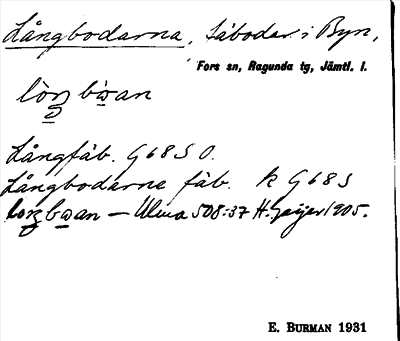 Långbodarna, Säbodar i Byn,
Fors sn, Ragunda tg, Jämtl. l.
Långfäb. G 68 S O.
Långbodarne fäb. k G 68 S
— Ulma 508:37 H. Geijer 1905.
E. BURMAN 1931